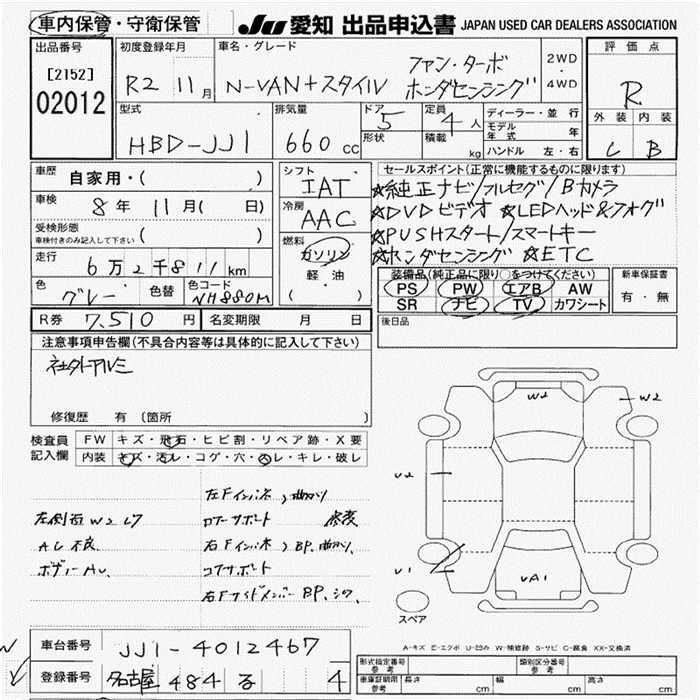 車内保管・守衛保管
JU 愛知 出品申込書 JAPAN USED CAR DEALERS ASSOCIATION
出品番号
[2152]
02012
初度登録年月
R2 11月
車名・グレード
N-VAN+スタイル ファン・ターボ
ホンダセンシング
2WD
・
4WD
評価点
R
外装 内装
C B
型式
HBD-JJ1
排気量
660 cc
ドア
5
形状
定員
4人
積載
kg
ディーラー・並行
モデル年式 年
ハンドル 左・右
車歴
自家用・( )
車検
8年 11月( 日)
受検形態
車検付きのみ記入して下さい
( )
走行
6万2千811km
色
グレー
色替
色コード
NH880M
シフト
IAT
冷房
AAC
燃料
ガソリン
軽油
( ・ )
セールスポイント(正常に機能するものに限ります)
☆純正ナビ/フルセグ/Bカメラ
☆DVDビデオ ☆LEDヘッド&フォグ
☆PUSHスタート/スマートキー
☆ホンダセンシング ☆ETC
装備品(純正品に限り○をつけてください)
PS PW エアB AW
SR ナビ TV カワシート
新車保証書
有・無
R券 7,510円
名変期限 月 日
後日品
注意事項申告欄(不具合内容等は具体的に記入して下さい)
社外アルミ
修復歴 有 (箇所
検査員
記入欄
FW キズ・飛石・ヒビ割・リペア跡・X要
内装 キズ・汚レ・コゲ・穴・ヌレ・キレ・破レ
左側面W2 L7
AC不良
ボディーAU
左Fインパネ 曲り
ロアーサポート 修変
右Fインパネ BP、曲り、
コアサポート
右Fサイドメンバー BP、シワ
W2
W2
U2
U1
UA1
スペア
A-キズ E-エクボ U-凹み W-補修跡 S-サビ C-腐食 XX-交換済
車台番号 JJ1-4012467
登録番号 名古屋 484 る 4
形式指定番号
参考
類別区分番号
参考
車庫証明用
参考
長さ cm 幅 cm 高さ cm